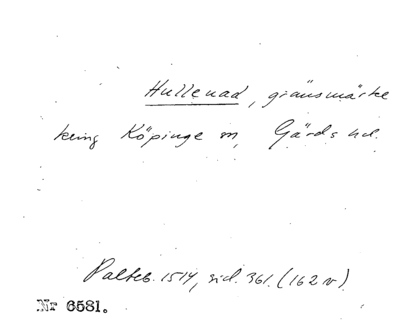 Hullenad, gränsmärke
kring Köpinge m, Gärds hd.
Palteb. 1514, sid. 361. (162 v).
Nr 6581.